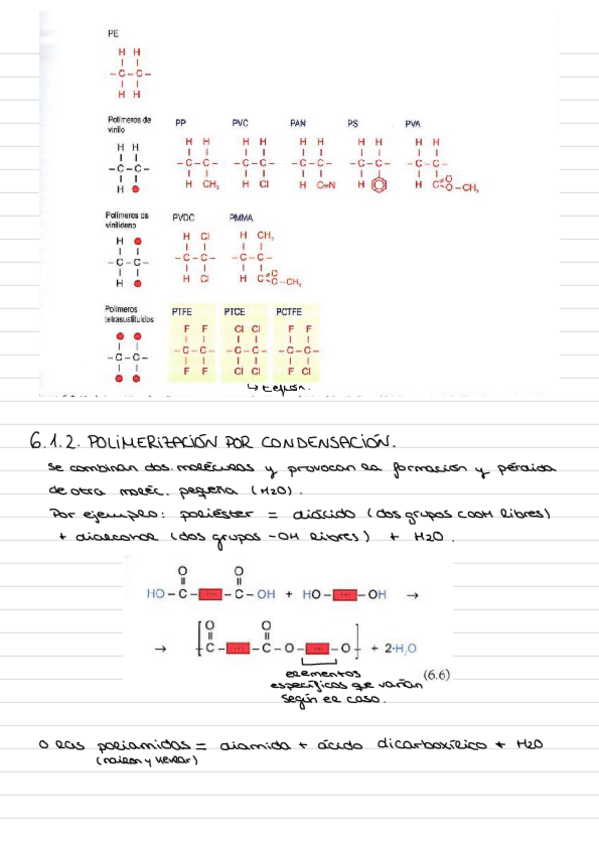 PE
H H
-C-C-
H H
Polímeros de vinilo
PP PVC PAN PS PVA
H H H H H H H H H H H H
-C-C- -C-C- -C-C- -C-C- -C-C- -C-C-
H H CH₃ H Cl H C≡N H H C O O-CH₃
Polímeros de vinilideno
PVDC PMMA
H H Cl H CH₃
-C-C- -C-C- -C-C-
H H Cl H C O O-CH₃
Polímeros tetrasustituidos
PTFE PTCE PCTFE
F F Cl Cl F F
-C-C- -C-C- -C-C- -C-C-
F F Cl Cl F Cl
↳ teflón.
6.1.2. POLIMERIZACIÓN POR CONDENSACIÓN.
Se combinan dos moléculas y provocan la formación y pérdida
de otra moléc. pequeña (H2O).
Por ejemplo: poliéster = diácido (dos grupos COOH libres)
+ dialcohol (dos grupos -OH libres) + H2O.
O O
HO-C- ... -C-OH + HO- ... -OH →
O O
→ [C- ... -C-O- ... -O] + 2·H₂O
elementos
específicos que varían
según el caso.
(6.6)
O las poliamidas = diamida + ácido dicarboxílico + H2O
(nailon y kevlar)